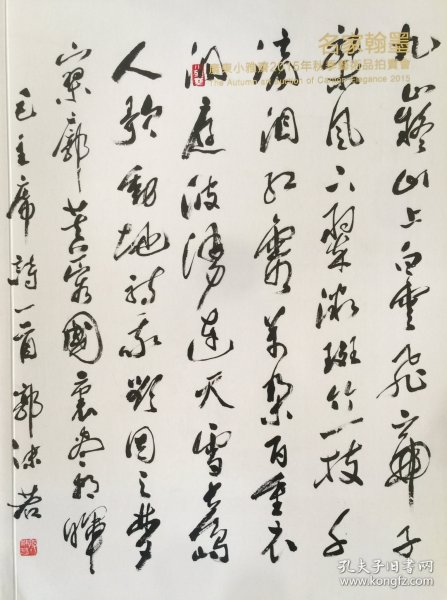 名家翰墨
廣東小雅齋2015年秋季藝術品拍賣會
The Autumn art auction of Canton Elegance 2015
九嶷山上白雲飛帝子
乘風下翠微斑竹一枝千
滴泪紅霞萬朵百重衣
洞庭波湧連天雪長島
人歌動地詩我欲因之夢
寥廓芙蓉國裏盡朝暉
毛主席詩一首 郭沫若
孔夫子旧书网
www.kongfz.com